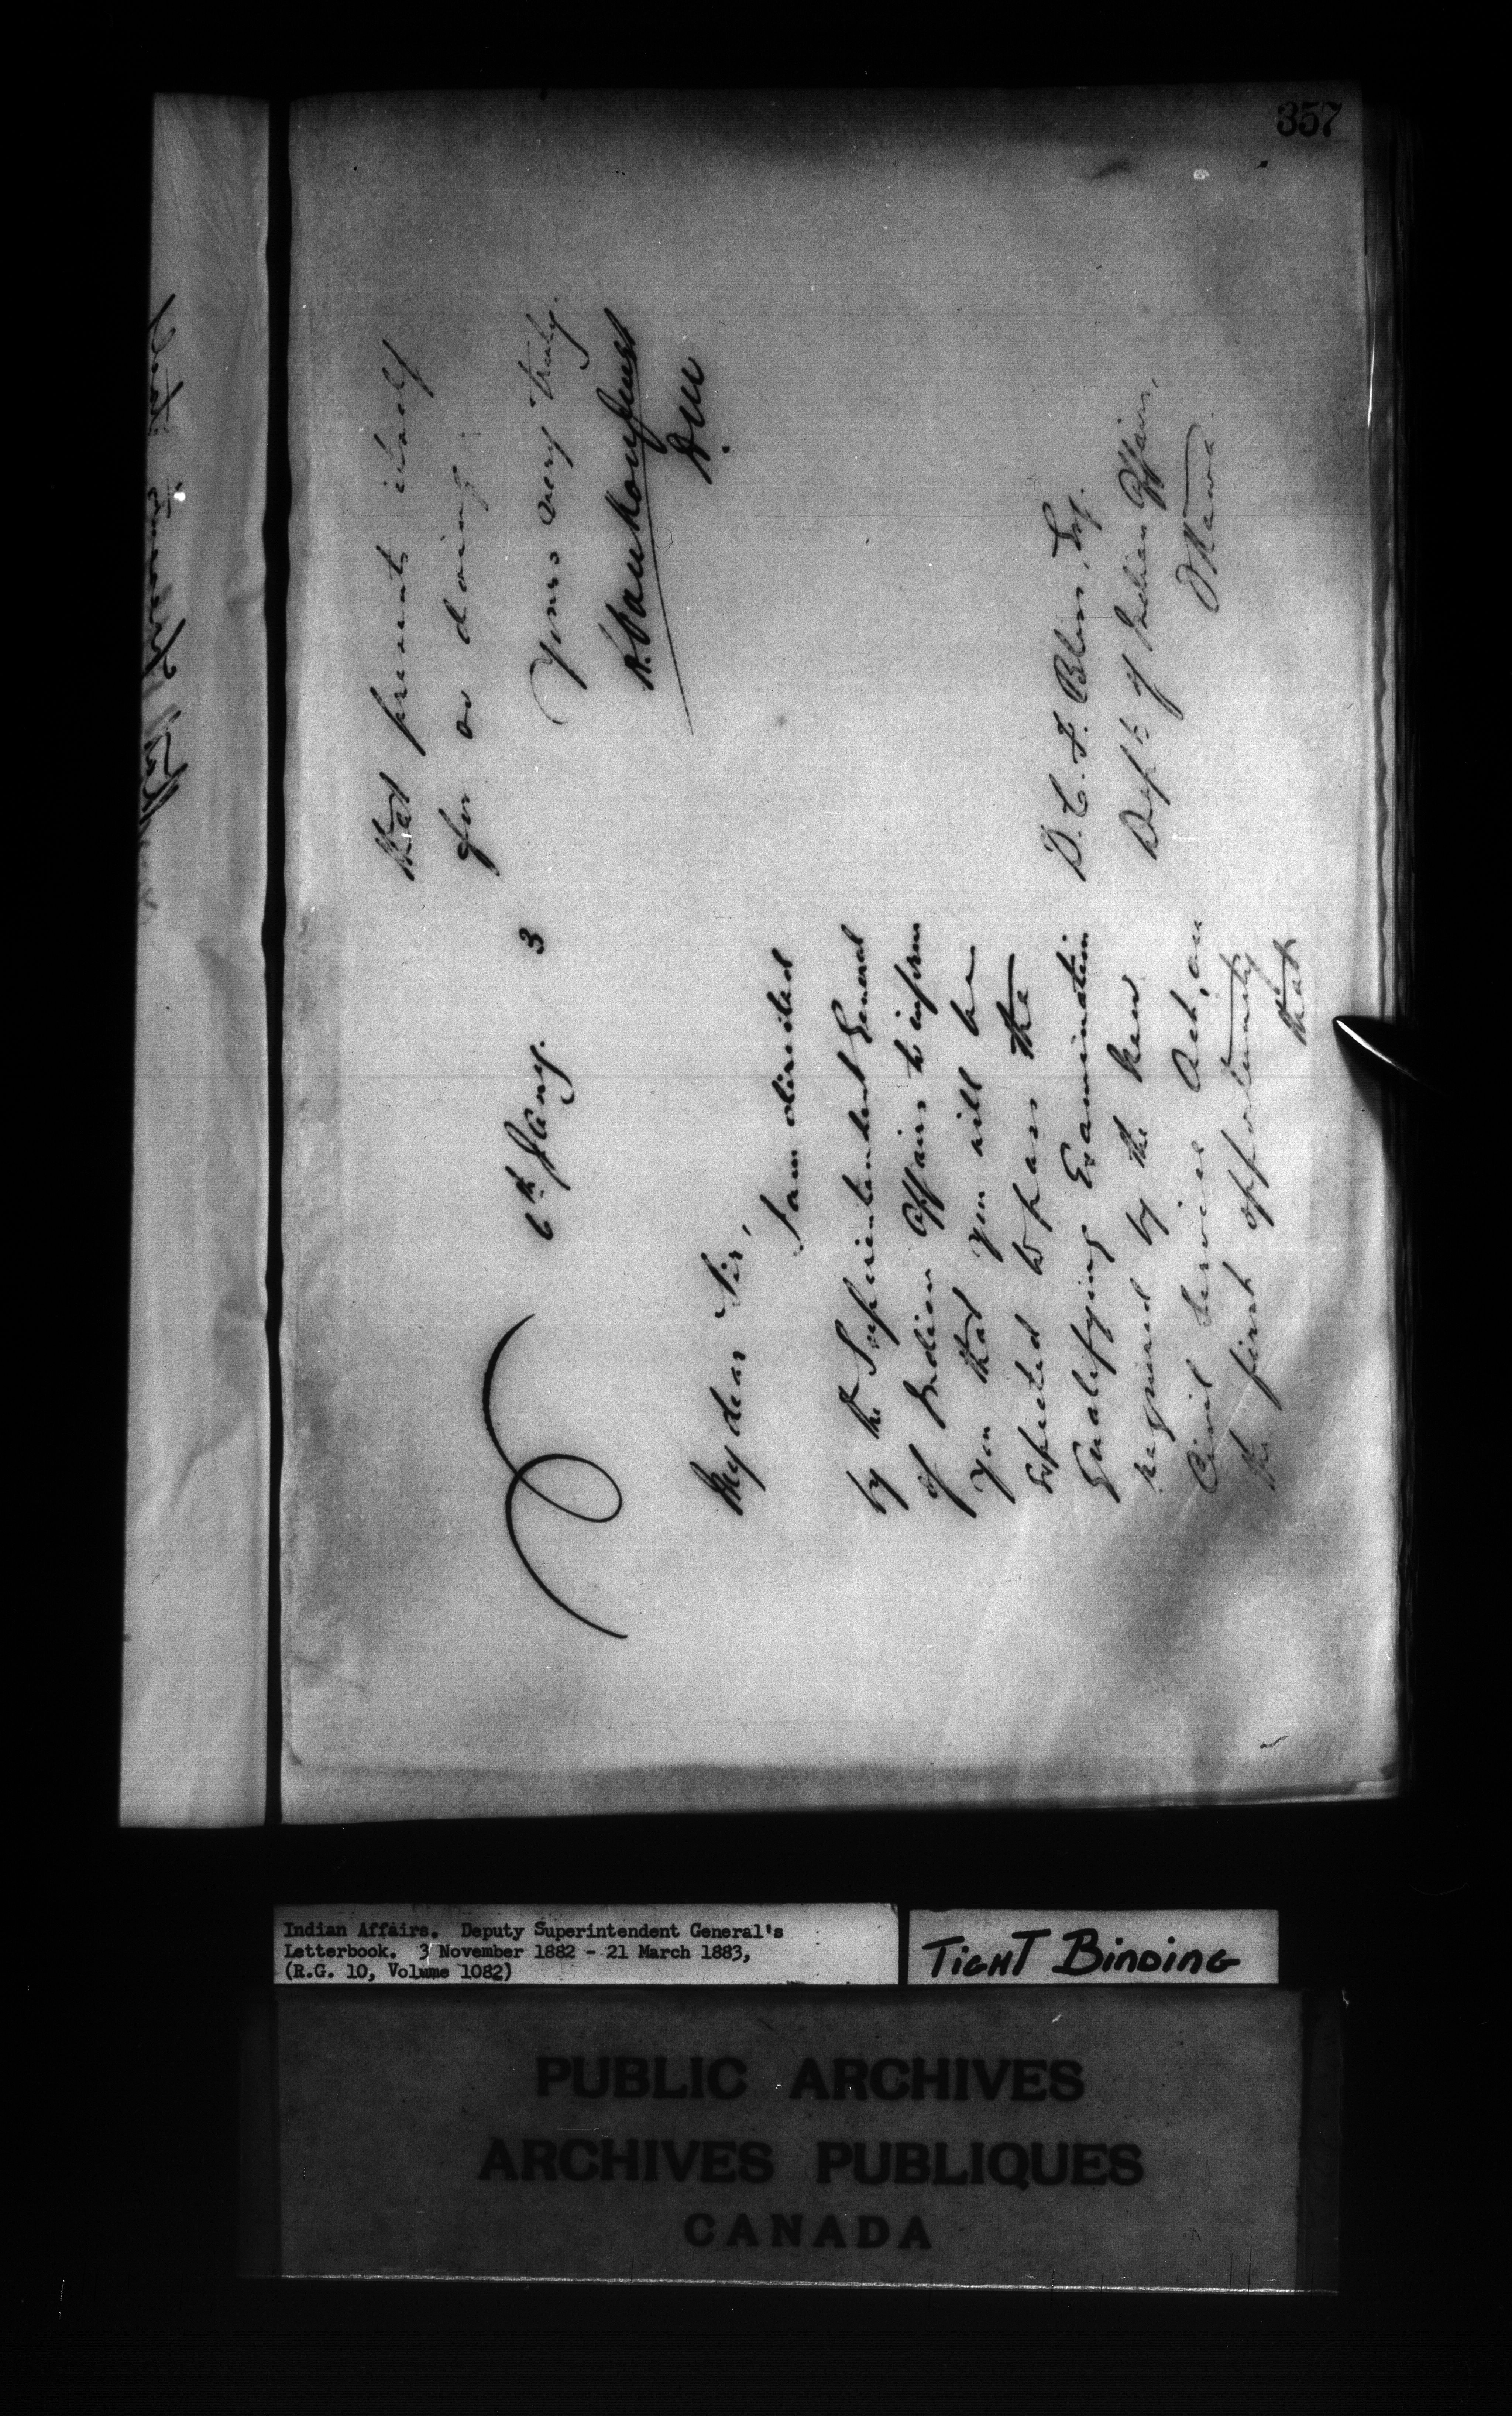 357
6th Jany. 3
My dear Sir,
I am directed
by the Superintendent General
of Indian Affairs to inform
you that you will be
expected to pass the
Qualifying Examination
required by the new
Civil Service Act, on
the first opportunity
that
that presents itself
for so doing.
Yours very truly.
L. Vankoughnet
D.M.
D. C. F. Bliss, Esq.
Dept. of Indian Affairs,
Ottawa
Indian Affairs. Deputy Superintendent General's
Letterbook. 3 November 1882 - 21 March 1883,
(R.G. 10, Volume 1082)
TIGHT BINDING
PUBLIC ARCHIVES
ARCHIVES PUBLIQUES
CANADA